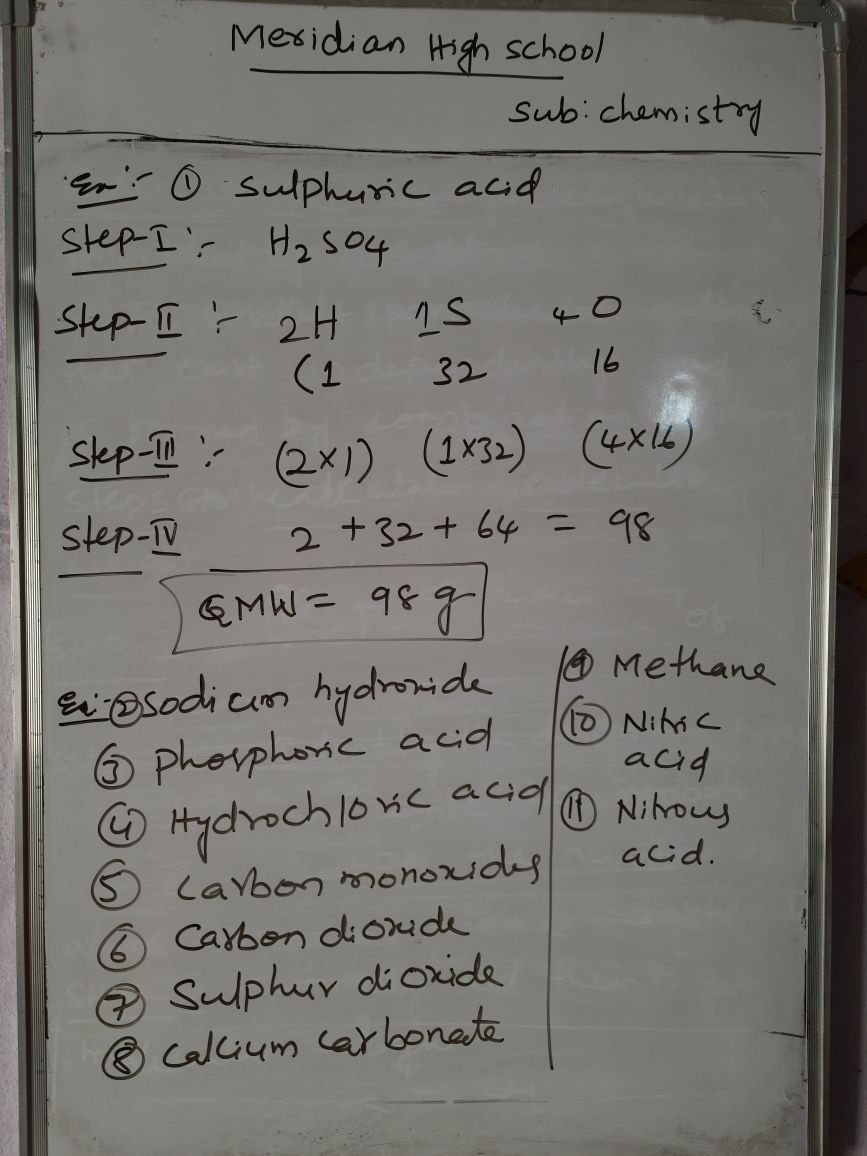 Meridian High school
sub: chemistry
Ex:- ① sulphuric acid
Step-I :- H₂SO₄
Step-II :- 2H 1S 4O
(1 32 16
Step-III :- (2×1) (1×32) (4×16)
Step-IV 2 + 32 + 64 = 98
GMW = 98 g
Ex:- ② Sodium hydroxide
③ Phosphoric acid
④ Hydrochloric acid
⑤ Carbon monoxides
⑥ Carbon dioxide
⑦ Sulphur dioxide
⑧ Calcium carbonate
⑨ Methane
⑩ Nitric
acid
⑪ Nitrous
acid.